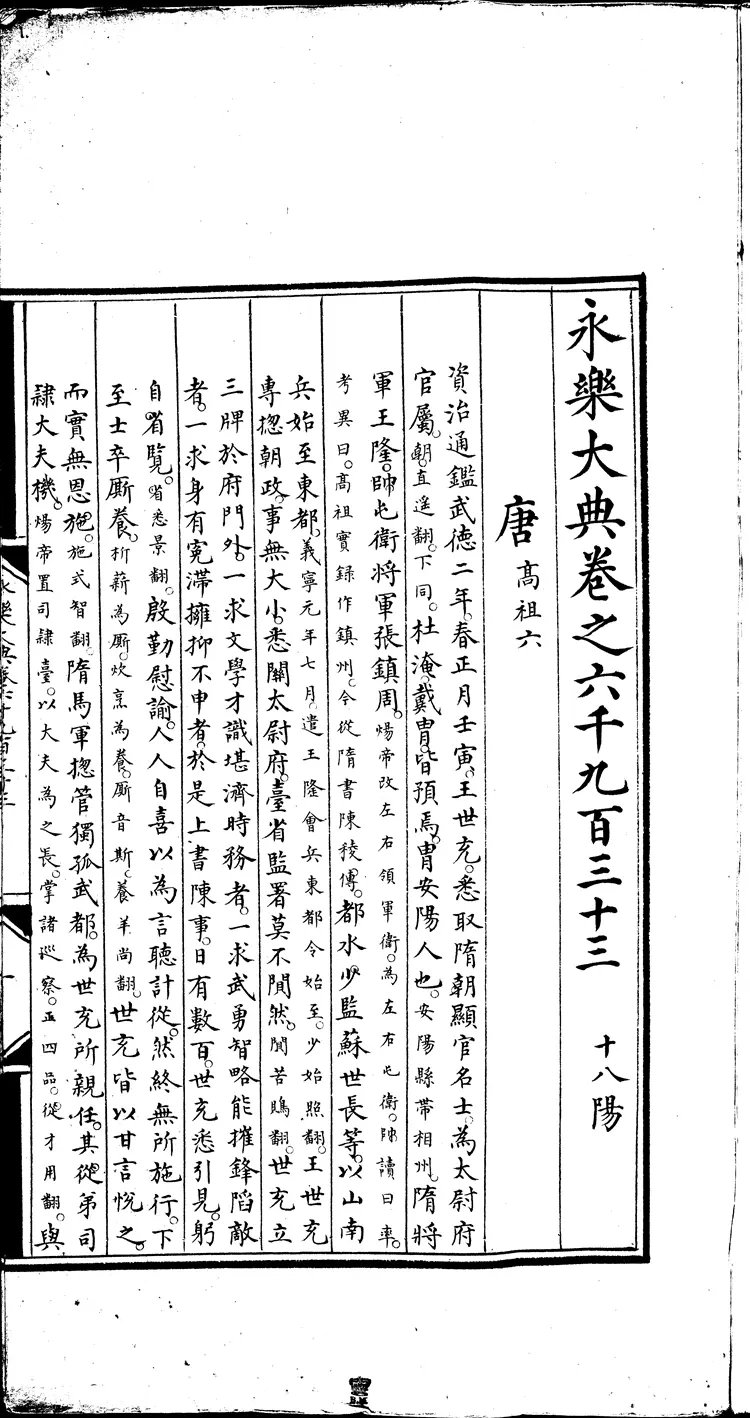 永樂大典卷之六千九百三十三 十八陽
唐 高祖六
資治通鑑武德二年。春正月壬寅。王世充。悉取隋朝顯官名士。為太尉府
官屬。朝。直遥翻。下同。杜淹。戴胄。皆預焉。胄安陽人也。安陽縣帶相州。隋將
軍王隆。帥屯衛將軍張鎮周。煬帝改左右領軍衛。為左右屯衛。帥讀曰率。
考異曰。高祖實錄作鎮州。今從隋書陳稜傳。都水少監蘇世長等。以山南
兵始至東都。義寧元年七月。遣王隆會兵東都今始至。少始照翻。王世充
專揔朝政。事無大小。悉關太尉府。臺省監署莫不閴然。閴苦鵙翻。世充立
三牌於府門外。一求文學才識堪濟時務者。一求武勇智略能摧鋒蹈敵
者。一求身有寃滯擁抑不申者。於是上書陳事。日有數百。世充悉引見。躬
自省覽。省悉景翻。殷勤慰諭。人人自喜以為言聽計從。然終無所施行。下
至士卒厮養。析薪為厮。炊烹為養。厮音斯。養羊尚翻。世充皆以甘言悅之。
而實無恩施。施式智翻。隋馬軍揔管獨孤武都。為世充所親任。其從弟司
隸大夫機。煬帝置司隸臺。以大夫為之長。掌諸巡察。正四品。從才用翻。與
永樂大典卷六千九百三十三
一